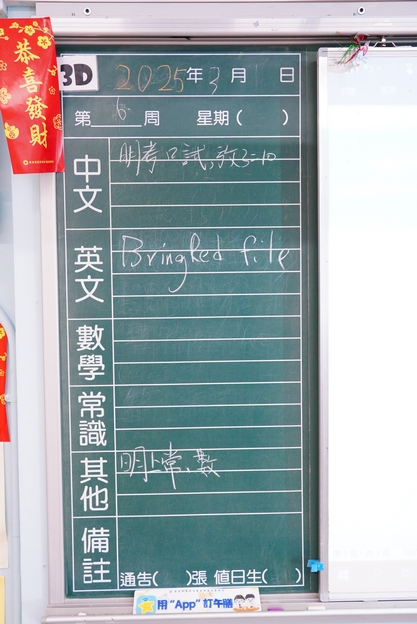 恭喜發財
3D
2025年3月 日
第 周 星期( )
中文
明考口試
英文
Bring Red file
數學
常識
其他
明上常、數
備註
通告( )張 值日生( )
用"App"訂午膳